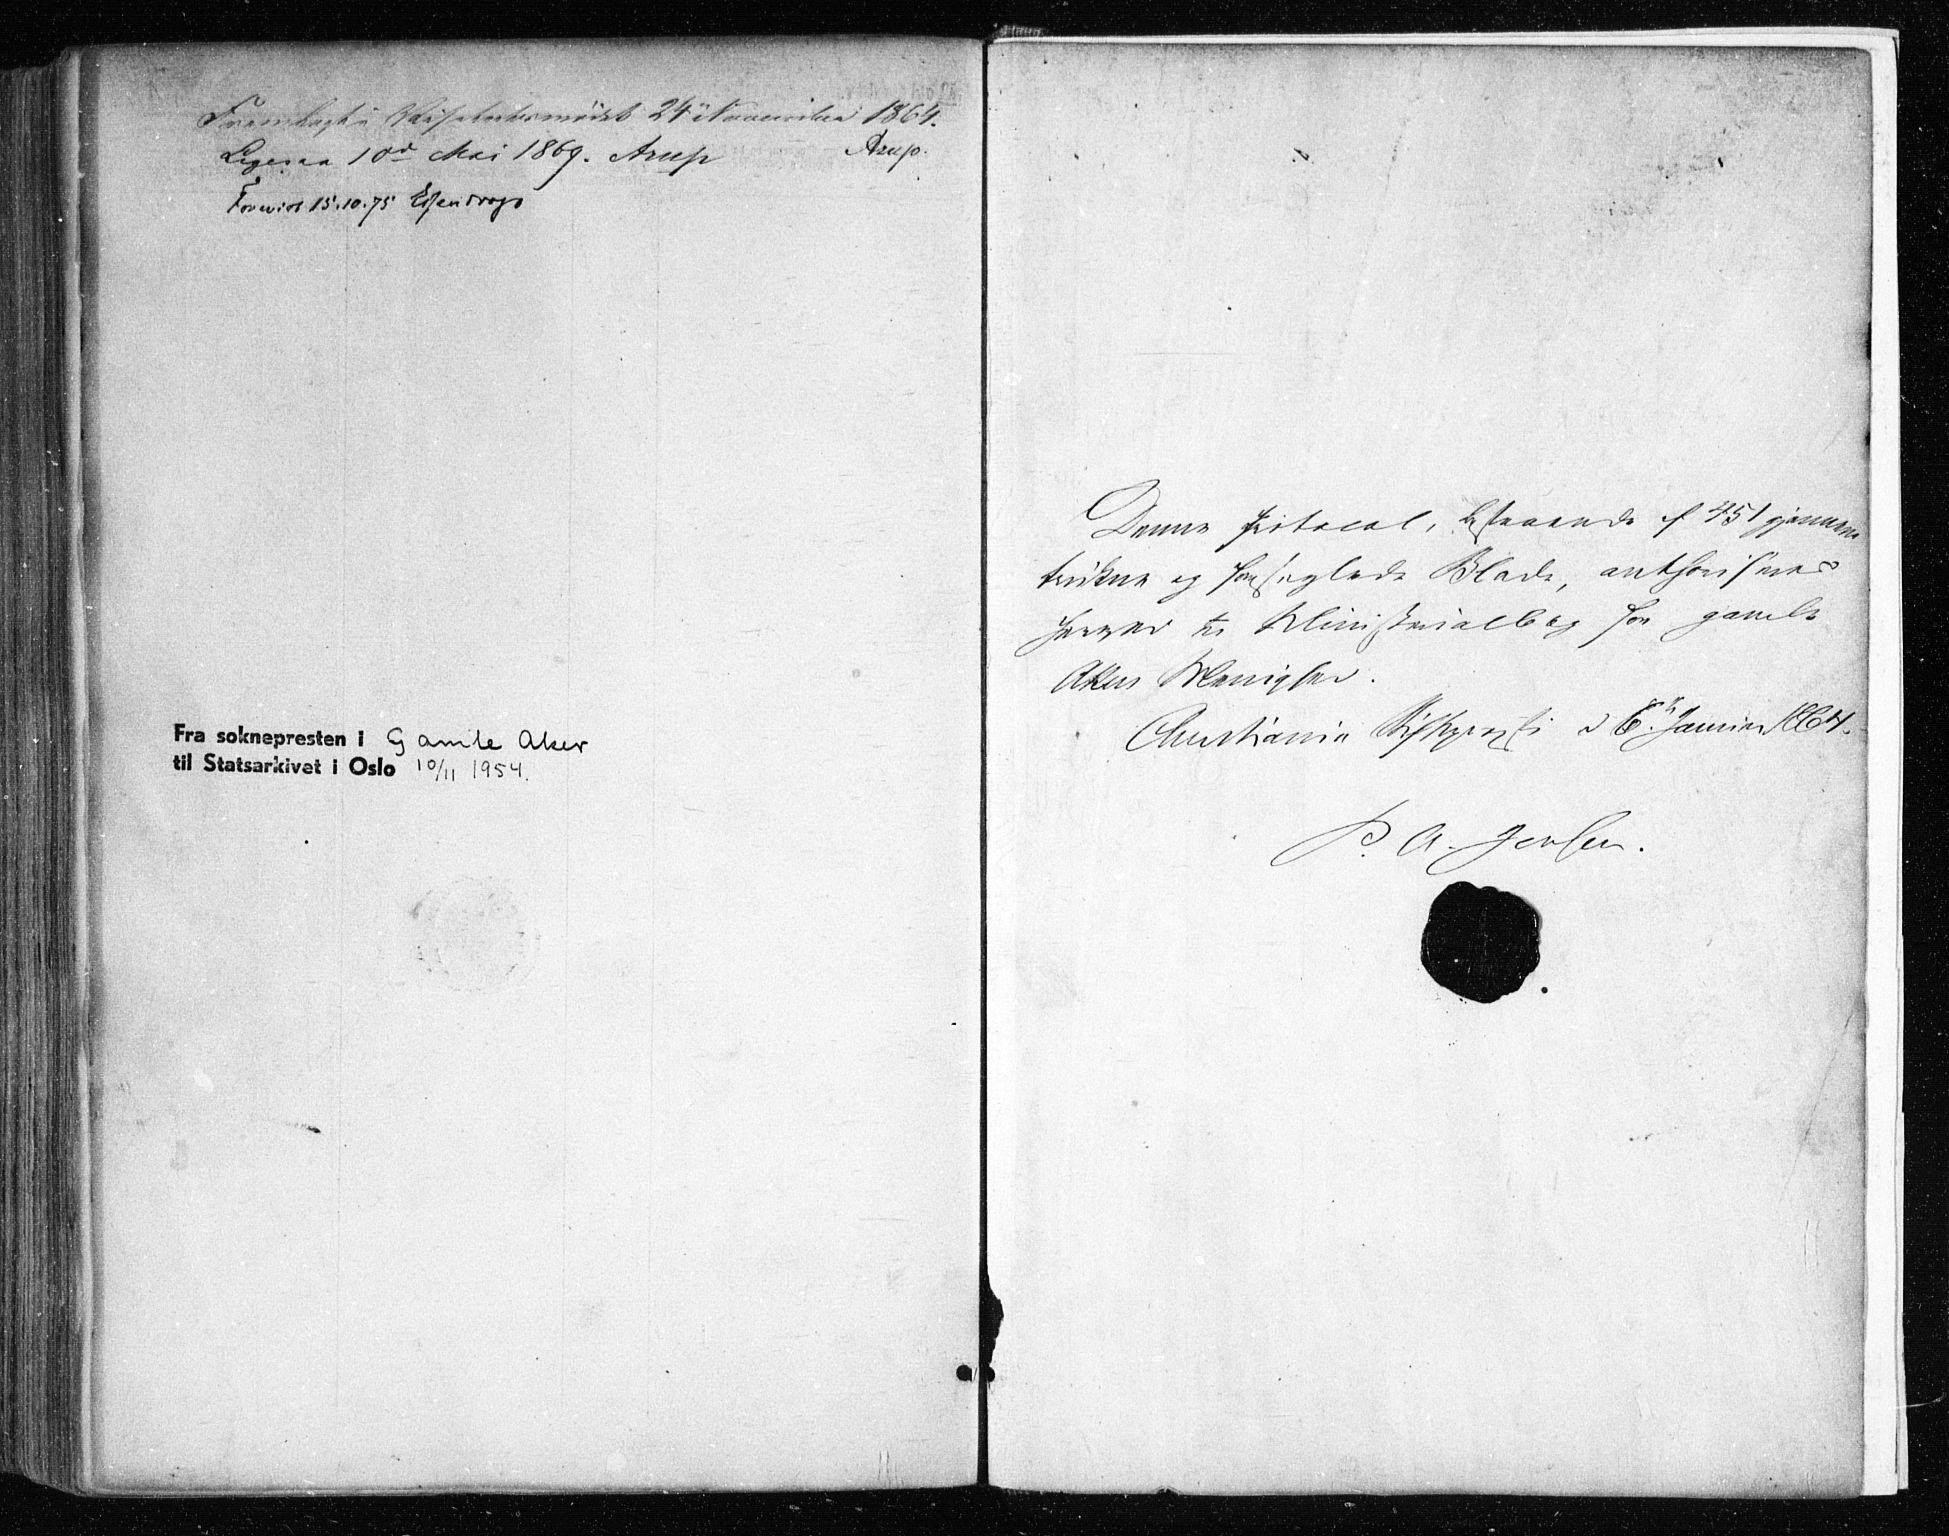 Fremlagt i Visitatsmødet 24de November 1864.
Arup.
Ligesaa 10de Mai 1869. Arup
Forevist 15.10.75 Essendrop
Fra sokneprensten i Gamle Aker
til Statsarkivet i Oslo 10/11 1954.
Denne Protocol, bestaaende af 451 gjennem
trukne og forseglede Blade, authoriseres
herved til Ministerialbog for gamle
Akers Menighed.
Christiania Stiftsprovsti d 6te Januar 1864.
P. A. Jensen.